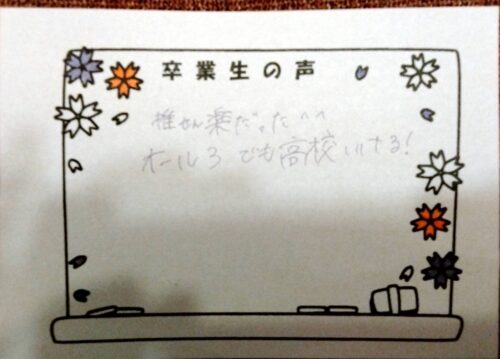 卒業生の声
推せん楽だった^^
オール3でも高校いける!